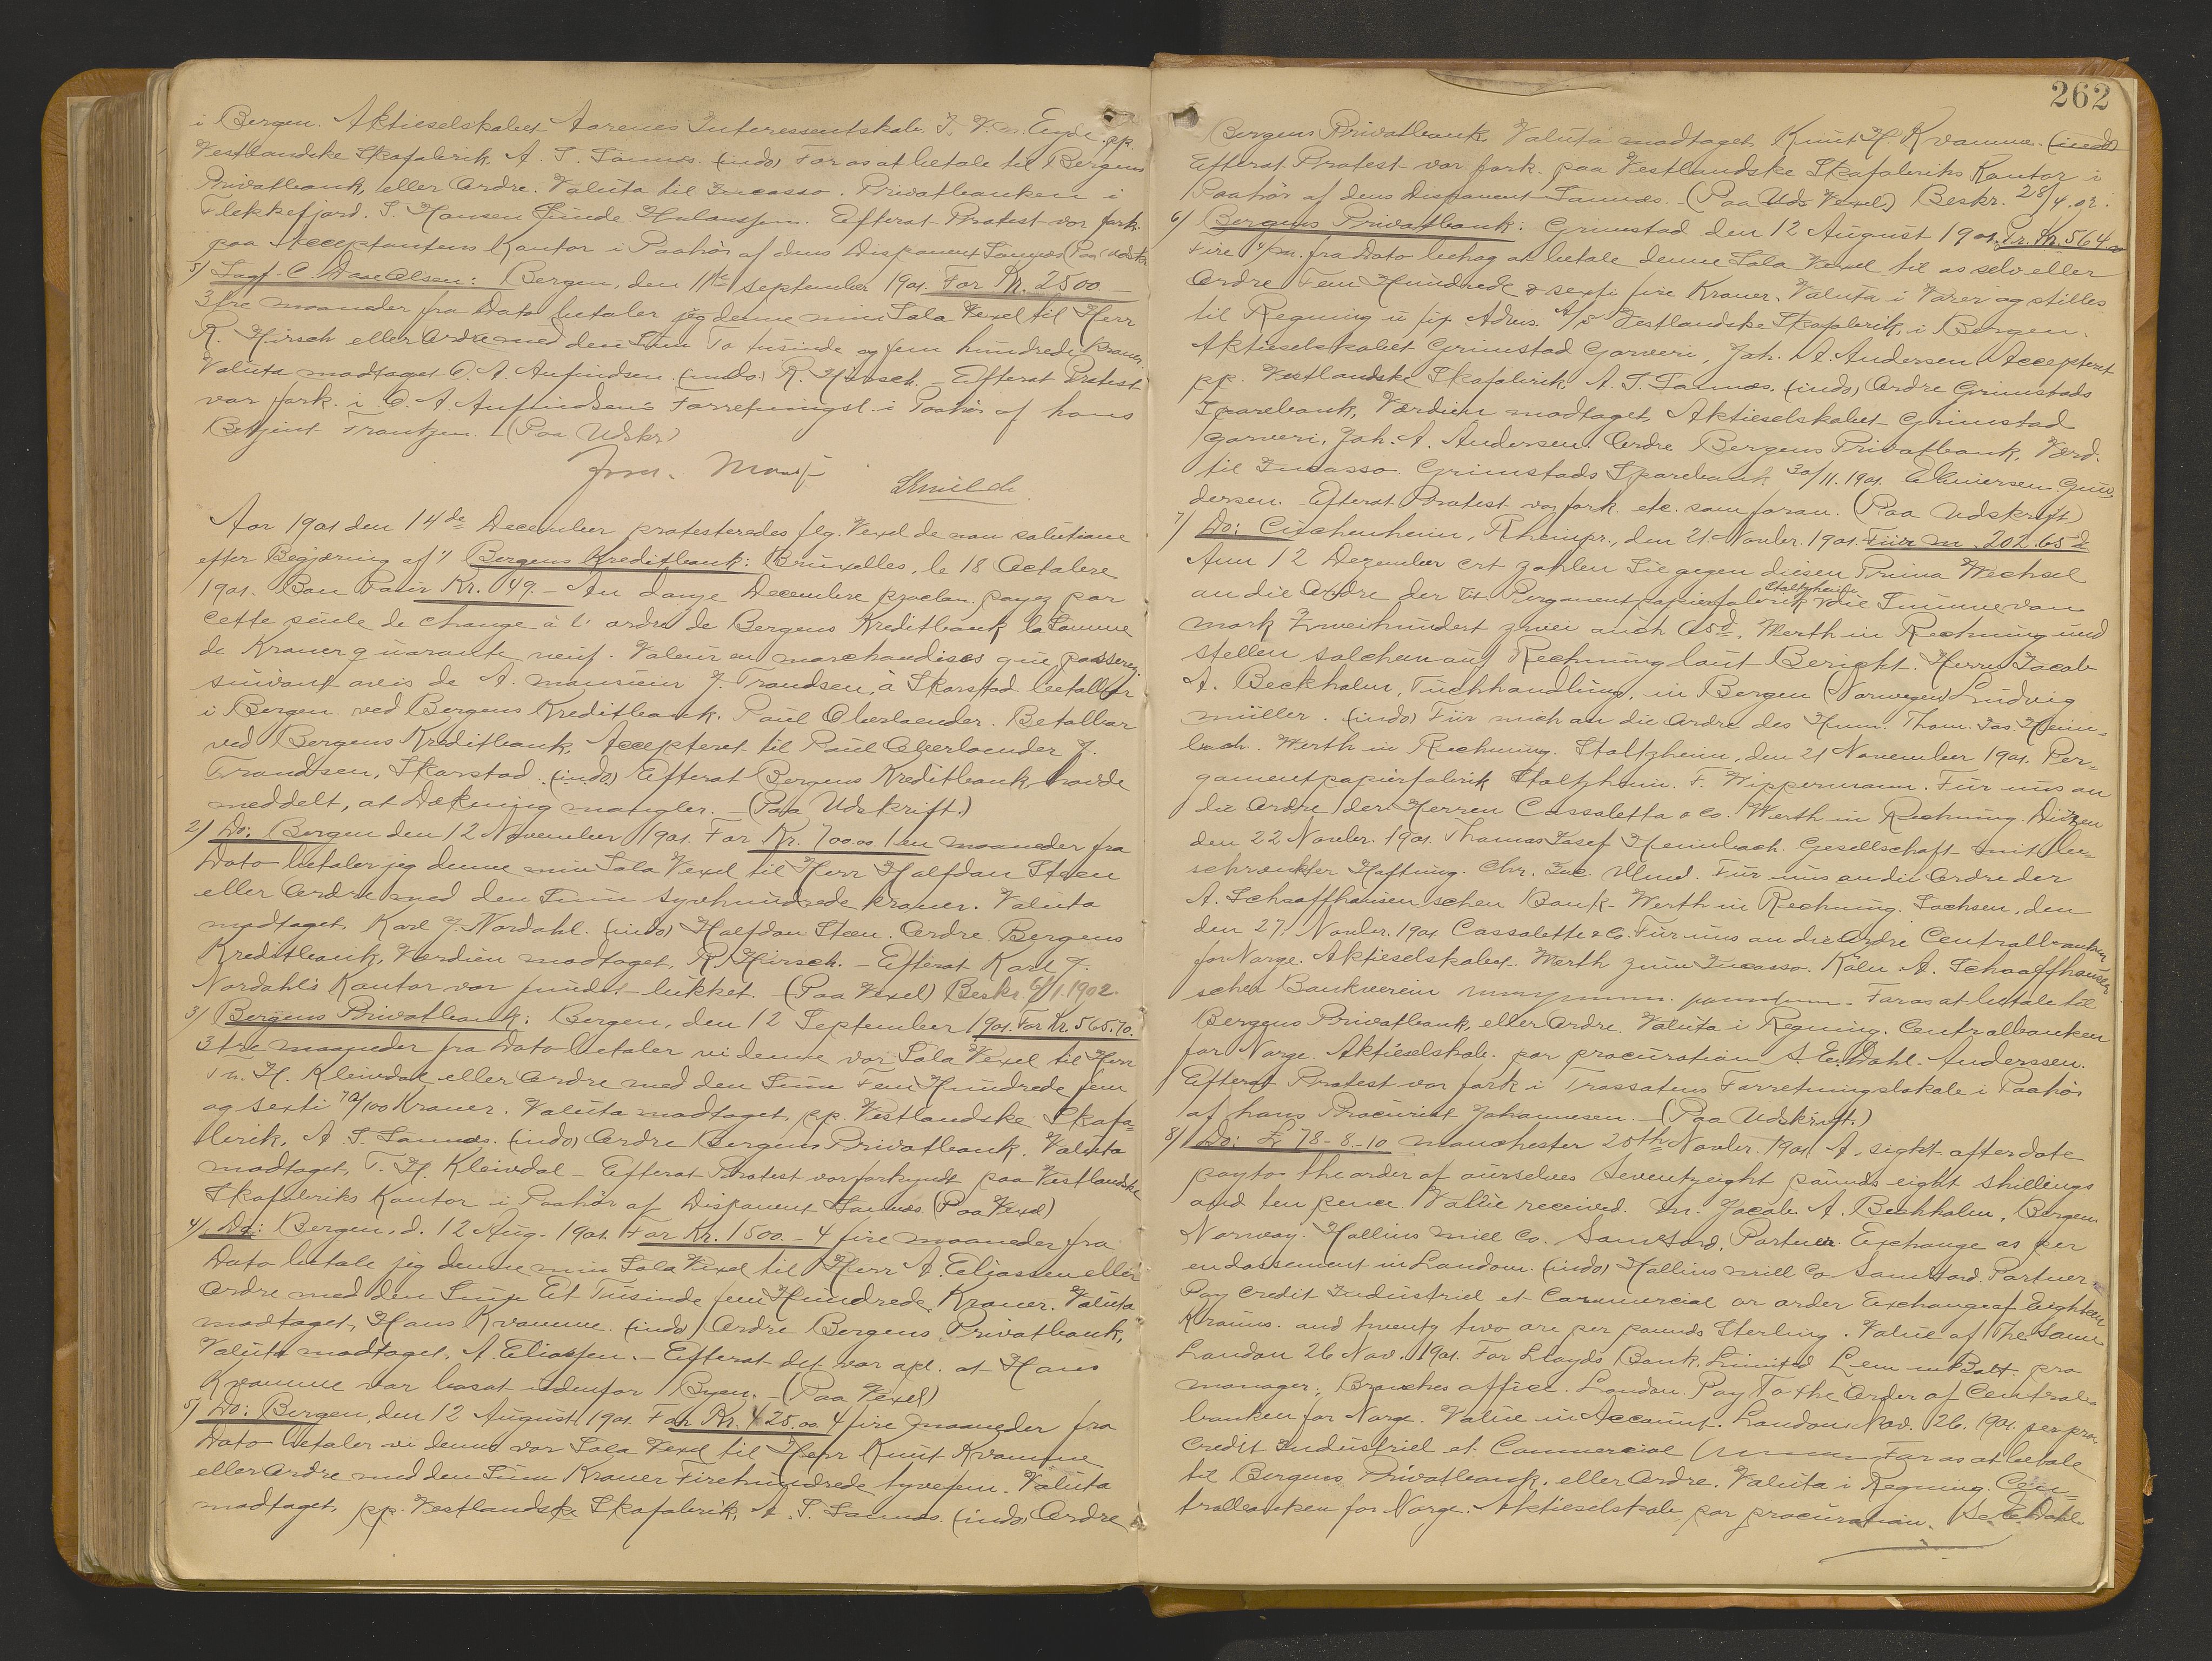 i Bergen. Aktieselskabet Aarenes Interessentskab. J. V. m. Eyde. pp.
Vestlandske Skofabrik, A. S. Sannæs. (indo) For os at betale til Bergens
Privatbank, eller Ordre. Valuta til Incasso. Privatbanken i
Flekkefjord. S. Hansen Sunde. Efterat Protest var fork.
paa Acceptantens Kontor i Paahør af dens Disponent Sannæs (Paa Udskr.
5) Sagf. C. Daae Olsen: Bergen, den 11te September 1901. For Kr. 2500.—
3 tre maaneder fra Dato betaler jeg denne min Sola Vexel til Herr
R. Hirsch eller Ordre med den Sum To tusinde og fem hundrede Kroner.
Valuta modtaget O. A. Anfindsen. (indo) R. Hirsch. — Efterat Protest
var fork. i O. A. Anfindsens Forretningsl. i Paahør af hans
Betjent Frantzen. (Paa Udskr)
Aar 1901 den 14de December protesteredes flg. Vexel de non solutione
efter Begjæring af 1) Bergens Kreditbank: Bruxelles, le 18 Octobre
1901. Bon Pour Kr. 49.— Au douze Decembre prochn. payez par
cette seule de change à l'ordre de Bergens Kreditbank la Somme
de Kroner quarante neuf. Valeur en marchandises que passerez
suivant avis de A. monsieur J. Trondsen, à Skarstad betalbar
i Bergen ved Bergens Kreditbank. Paul Oberlaender. Betalbar
ved Bergens Kreditbank, Accepteret til Paul Oberlaender J.
Trondsen, Skarstad. (indo) Efterat Bergens Kreditbank havde
meddelt, at Dækning mangler. — (Paa Udskrift.)
2) Do: Bergen den 12 November 1901. For Kr. 700.00. 1 en maaneder fra
Dato betaler jeg denne min Sola Vexel til Herr Halfdan Steen
eller Ordre med den Sum syvhundrede Kroner. Valuta
modtaget, Karl J. Nordahl. (indo) Halfdan Steen. Ordre Bergens
Kreditbank, Værdien modtaget, R. Hirsch. — Efterat Karl J.
Nordahl's Kontor var fundet lukket. (Paa Vexel) Beskr. 6/1.1902
3) Bergens Privatbank: Bergen, den 12 September 1901. For Kr. 565.70.
3 tre maaneder fra Dato betaler vi denne vor Sola Vexel til Herr
Th. H. Kleivdal eller Ordre med den Sum Fem Hundrede fem
og sexti 70/100 Kroner. Valuta modtaget, pp. Vestlandske Skofa=
brik, A. S. Sannæs. (indo) Ordre Bergens Privatbank. Valuta
modtaget, T. H. Kleivdal — Efterat Protest var forkyndt paa Vestlandske
Skofabriks Kontor i Paahør af Disponent Sannæs. (Paa Vexel)
4) Do: Bergen, d. 12 Aug. 1901. For Kr. 1500.— 4 fire maaneder fra
Dato betale jeg denne min Sola Vexel til Herr A. Eliassen eller
Ordre med den Sum Et Tusinde fem Hundrede Kroner. Valuta
modtaget, Hans Kvamme. (indo) Ordre Bergens Privatbank,
Valuta modtaget, A. Eliassen. — Efterat det var opl. at Hans
Kvamme var bosat udenfor Byen. — (Paa Vexel)
5) Do: Bergen, den 12 August 1901. For Kr. 425.00. 4 fire maaneder fra
Dato betaler vi denne vor Sola Vexel til Herr Knut Kvamme
eller Ordre med den Sum Kroner Firehundrede tyvefem. Valuta
modtaget, pp. Vestlandske Skofabrik, A. S. Sannæs. (indo) Ordre
262
Bergens Privatbank, Valuta modtaget, Knut H. Kvamme. (indo)
Efterat Protest var fork. paa Vestlandske Skofabriks Kontor i
Paahør af dens Disponent Sannæs. — (Paa Uds Vexel) Beskr. 28/4.02.
6) Bergens Privatbank: Grimstad den 12 August 1901. Pr. Kr. 564.00
Fire 4/m. fra Dato behag at betale denne Sola Vexel til os selv eller
Ordre Fem Hundrede & sexti fire Kroner. Valuta i Varer og stilles
til Regning u/ Advis. A/S Vestlandske Skofabrik, i Bergen.
Aktieselskabet Grimstad Garveri, Joh. A. Andersen Accepteret
pp. Vestlandske Skofabrik A. S. Sannæs. (indo) Ordre Grimstads
Sparebank, Værdien modtaget, Aktieselskabet Grimstad
Garveri, Joh. A. Andersen. Ordre Bergens Privatbank, Værd.
til Incasso. Grimstads Sparebank 30/11.1901. Gun=
dersen. Efterat Protest var fork. etc. som foran. (Paa Udskrift)
7) Do: Cuchenheim, Rheinpr., den 21. Novbr. 1901. Für M. 202.65 d
Am 12 Dezember crt zahlen Sie gegen diesen Prima Wechsel
an die Ordre der Tit. Pergamentpapierfabrik Stotzheim die Summe von
Mark Zweihundert zwei auch 65 d. Werth in Rechnung und
stellen solchen auf Rechnung laut Bericht. Herrn Jacob
A. Beckholm, Tuchhandlung, in Bergen (Norwegen) Ludvig
Müller. (indo) Für mich an die Ordre des Herrn. Thom. Jos. Heim=
bach. Werth in Rechnung. Stoltzheim, den 21 November 1901. Per=
gamentpapierfabrik Stoltzheim. F. Wippermann. Für uns an
die Ordre der Herren Cassalette & Co. Werth in Rechnung. Düren
den 22 Novbr. 1901. Thomas Josef Heimbach. Gesellschaft mit be=
schränkter Haftung. Chr. Für uns an die Ordre der
A. Schaaffhausen'schen Bank- Werth in Rechnung. Aachen, den
den 27. Novbr. 1901 Cassalette & Co. Für uns an die Ordre Centralbanken
for Norge. Aktieselskabet. Werth zum Incasso. Köln A. Schaaffhausen
scher Bankverein For os at betale til
Bergens Privatbank, eller Ordre. Valuta i Regning. Centralbanken
for Norge. Aktieselskab. par procuration S. E. Dahl. Anderssen.
Efterat Protest var fork i Trassatens Forretningslokale i Paahør
af hans Procurist Johannesen. — (Paa Udskrift.)
8) Do: £ 78-8-10 Manchester 25th Novbr. 1901 A. sight after date
pay to the order of ourselves Seventyeight pounds eight shillings
and ten pence. Vallue received. Mr. Jacob A. Beckholm, Bergen
Norway. Hollins Mill Co. Partner. Exchange as per
endossement in London. (indo) Hollins Mill Co Partner.
Pay Credit Industriel et Commercial or order Exchange of Eighteen
Krouns. and twenty two øre per pounds Sterling. Value of The same
London 26 Nov. 1901. For Lloyds Bank, Limited pro
manager. Branches office. London. Pay To the Order of Central=
banken for Norge. Value in Account. London Nov. 26. 1901. per pro
Credit Industriel et Commercial For os at betale
til Bergens Privatbank, eller Ordre. Valuta i Regning. Cen=
tralbanken for Norge. Aktieselskab, par procuration. S. E. Dahl.